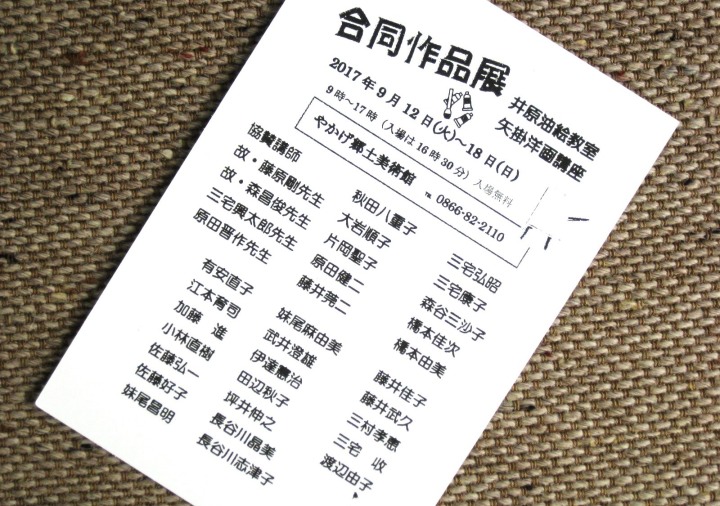 合同作品展
井原油絵教室
矢掛洋画講座
2017年9月12日(火)~18日(日)
9時~17時 (入場は16時30分) 入場無料
やかげ郷土美術館 ℡ 0866-82-2110
協賛講師
故・藤原剛先生
故・森昌俊先生
三宅興太郎先生
原田晋作先生
有安直子
江本育司
加藤 進
小林直樹
佐藤弘一
佐藤好子
妹尾昌明
秋田八重子
大岩順子
片岡聖子
原田健二
藤井亮二
妹尾麻由美
武井澄雄
伊達憲治
田辺秋子
坪井伸之
長谷川晶美
長谷川志津子
三宅弘昭
三宅康子
森谷三沙子
橋本佳次
橋本由美
藤井佳子
藤井武久
三村孝憲
三宅 收
渡辺由子